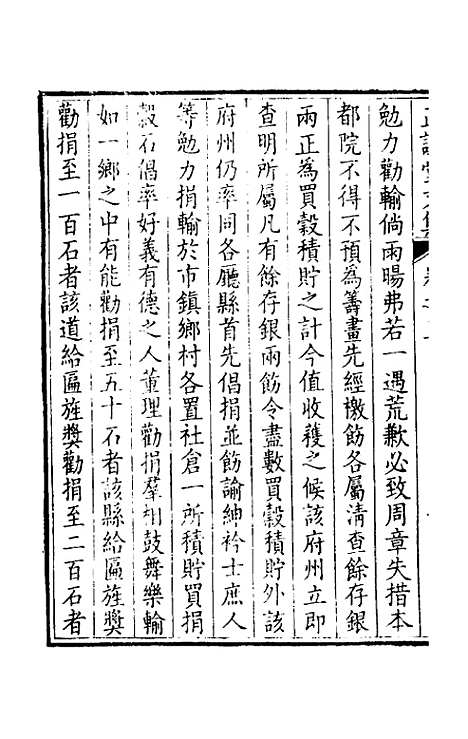 勉力勸輸倘雨暘弗若一遇荒歉必致周章失措本
都院不得不預為籌畫先經檄飭各屬清查餘存銀
兩正為買穀積貯之計今值收穫之候該府州立即
查明所屬凡有餘存銀兩飭令盡數買穀積貯外該
府州仍率同各廳縣首先倡捐並飭諭紳衿士庶人
等勉力捐輸於市鎮鄉村各置社倉一所積貯買捐
穀石倡率好義有德之人董理勸捐羣相鼓舞樂輸
如一鄉之中有能勸捐至五十石者該縣給匾旌獎
勸捐至一百石者該道給匾旌獎勸捐至二百石者